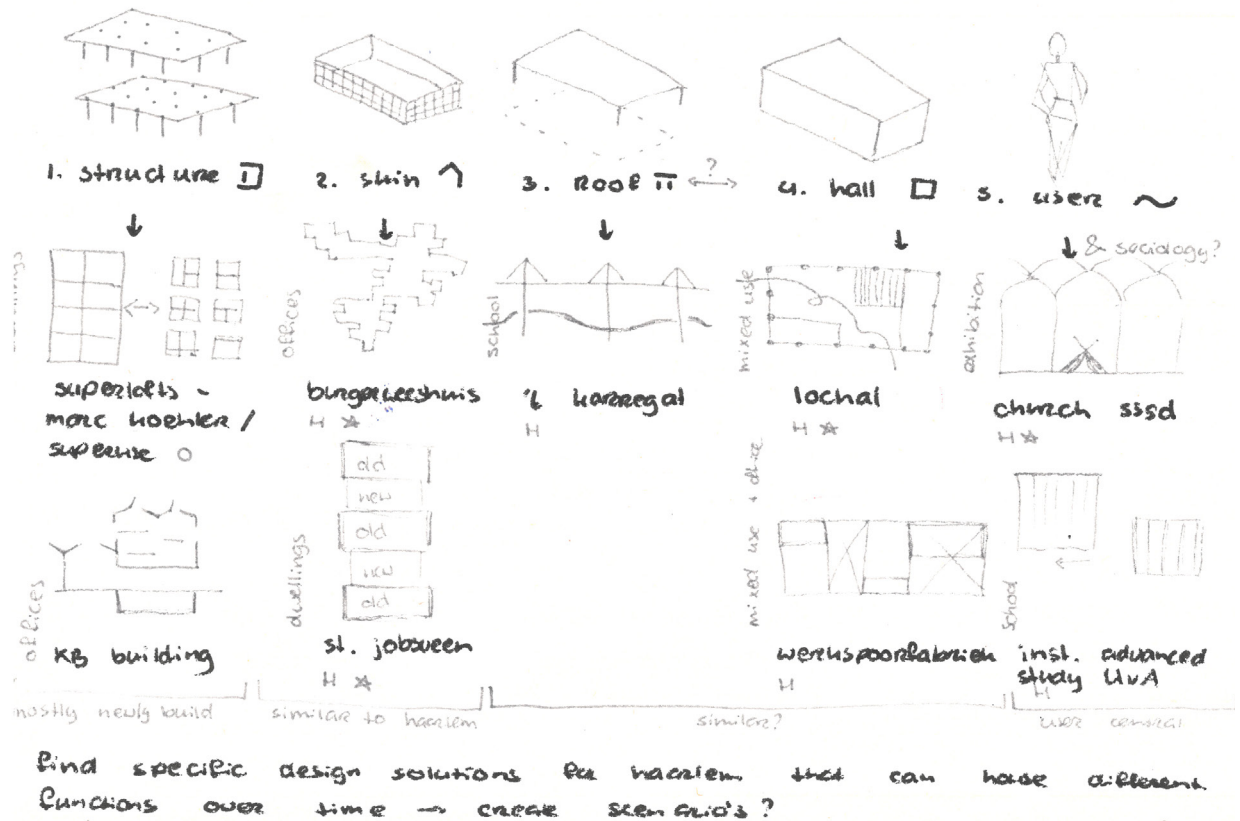 1. structure
2. skin
3. roof
?
4. hall
5. user
& sociology?
offices
school
mixed use
exhibition
superlofts -
marc koehler /
superuse
burgerweeshuis
H
't karregat
H
lochal
H
church sssd
H
old
new
old
new
old
offices
dwellings
mixed use + office
school
KB building
st. jobsveen
H
werkspoorfabriek
H
inst. advanced
study UvA
H
mostly newly build
similar to haarlem
similar?
user central
find specific design solutions for haarlem that can house different
functions over time → create scenario's?